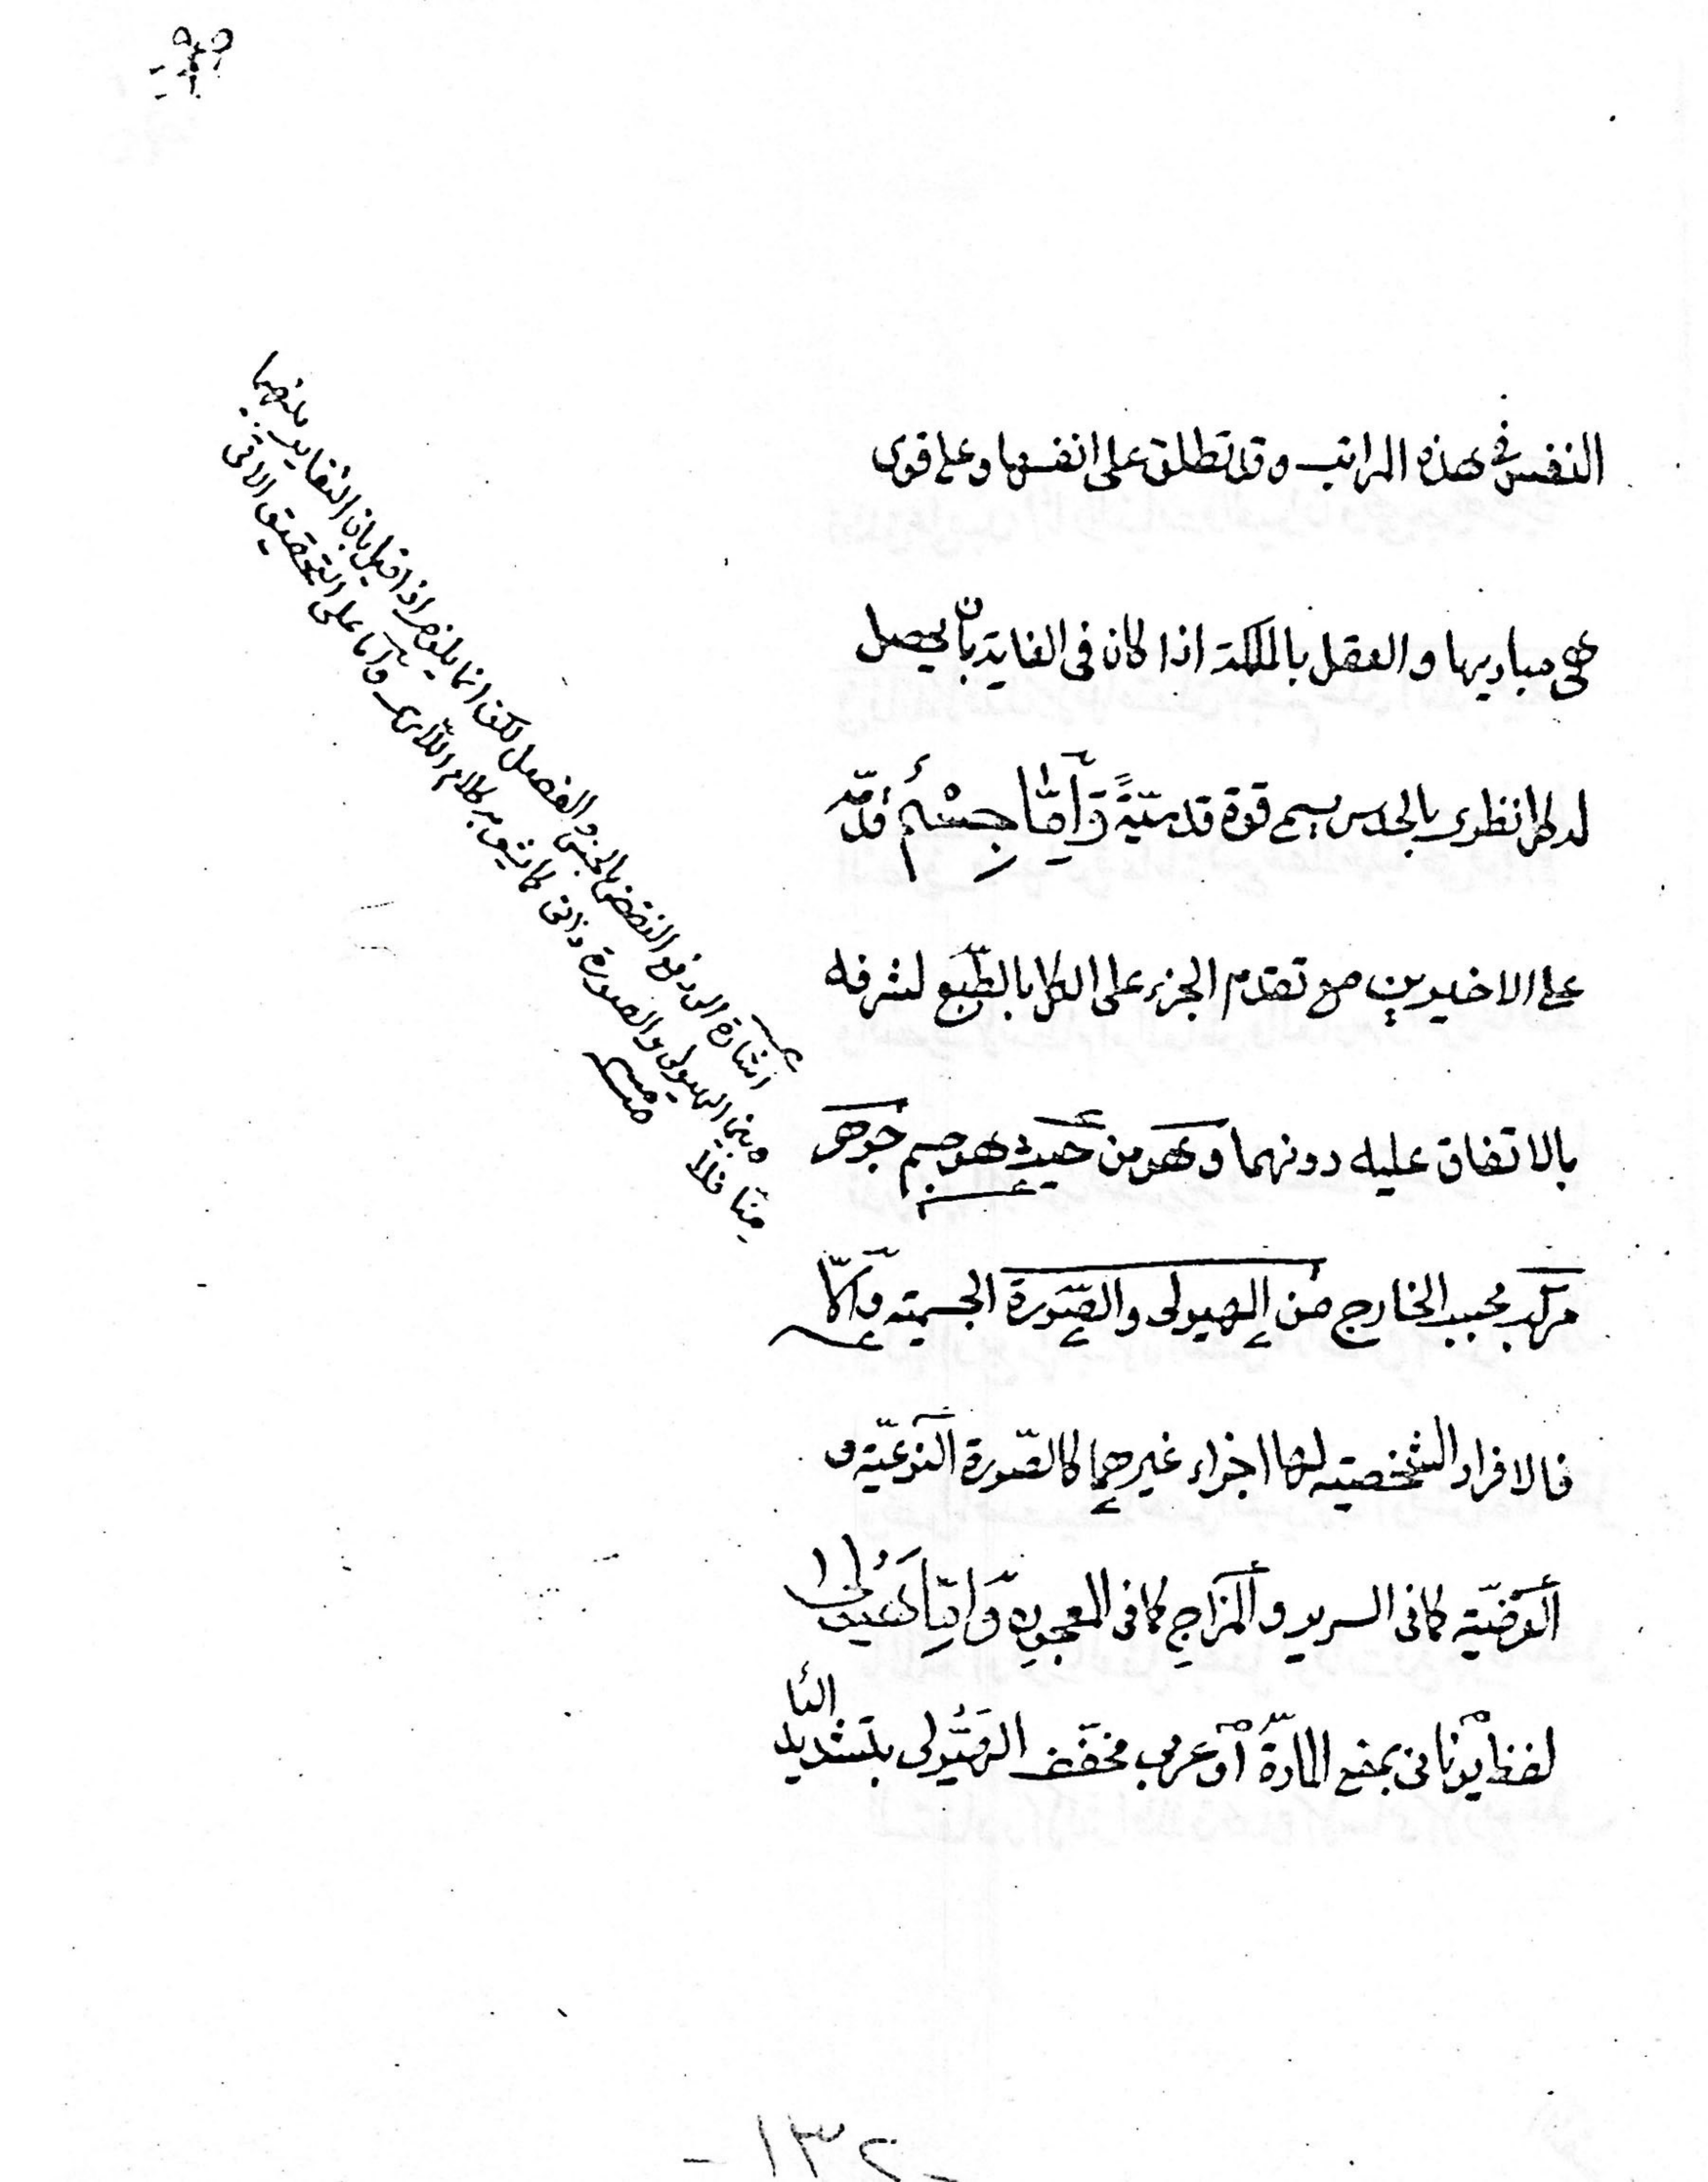 النفس في هذه المراتب وقد تطلق على انفسها وعلى قوى
هي مباديها والعقل بالملكة اذا كان في الغاية بأن يحصل
له كل نظري بالحدس يسمى قوة قدسيّةً وَاِمَّا جِسْمٌ قدّمه
على الاخيرين مع تقدم الجزء على الكل بالطّبع لشرفه
بالاتفاق عليه دونهما وَهو من حيث هو جسم جَوهر
مركب بحسب الخارج من الهيولى والصّورة الجسمية وَاَمّا
فالافراد الشخصية لها اجزاء غيرهما كالصّورة النّوعيّة و
العَرَضيّة كما في السرير والمزاج كما في المعجون وَاِمَّا هَيُولى
لفظ يوناني بمعنى المادّة أو عربي مخفّف الهَيُّولى بتشديد
اليا
اشارة الى دفع النقض بالجنس والفصل لكن انما يلزم اذا قيل بان التغاير بينهما
وبين الهيولى والصورة ذاتي كما يشعر به كلام اللارى وأما على التحقيق الاتي
منّا فلا
منه
- ١٣٢ -